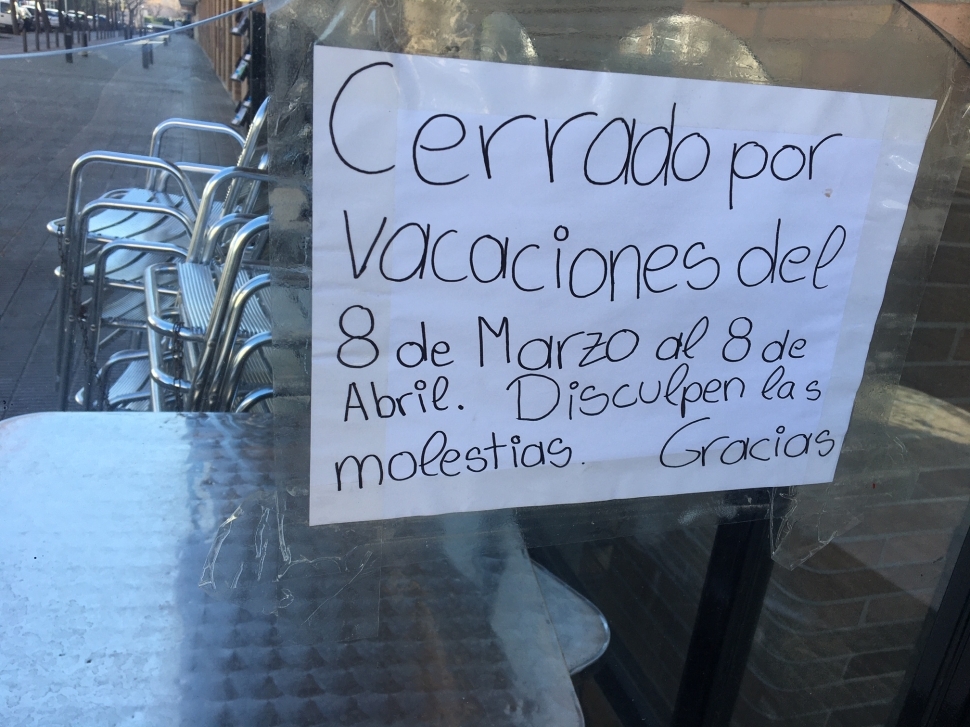 Cerrado por
vacaciones del
8 de Marzo al 8 de
Abril. Disculpen las
molestias. Gracias